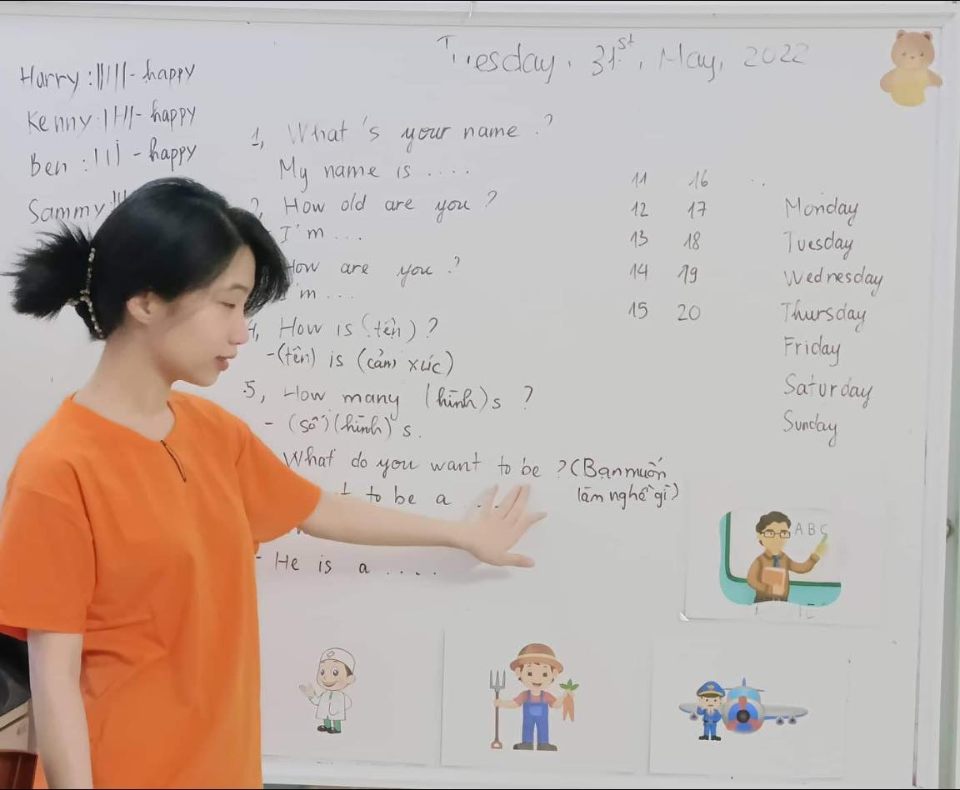 Tuesday, 31st, May, 2022
Harry : - happy
Kenny : - happy
Ben : - happy
Sammy
1, What's your name ?
My name is ....
How old are you ?
I'm ...
How are you ?
I'm ...
4, How is (tên) ?
-(tên) is (cảm xúc)
5, How many (hình)s ?
- (số) (hình)s.
What do you want to be ? (Bạn muốn
làm nghề gì)
to be a ....
- He is a ....
11 16 ..
12 17
13 18
14 19
15 20
Monday
Tuesday
Wednesday
Thursday
Friday
Saturday
Sunday
ABC